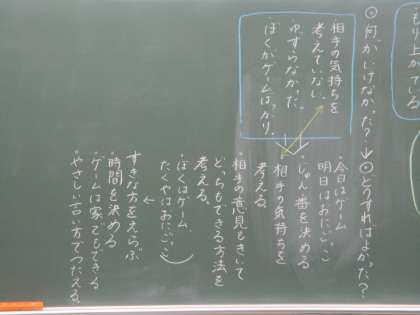 もり上がっている
⊙何がいけなかった?→⊙どうすればよかった?
・相手の気持ちを
考えていない。
・ゆずらなかった。
・ぼくがゲームばっかり。
・今日はゲーム
明日はおにごっこ
・じゅん番を決める
・相手の気持ちを
考える。
・相手の意見もきいて
どっちもできる方法を
考える。
・ぼくはゲーム、
たくやはおにごっこ
↓
すきな方をえらぶ
・時間を決める
・ゲームは家でもできる
・やさしい言い方でつたえる。